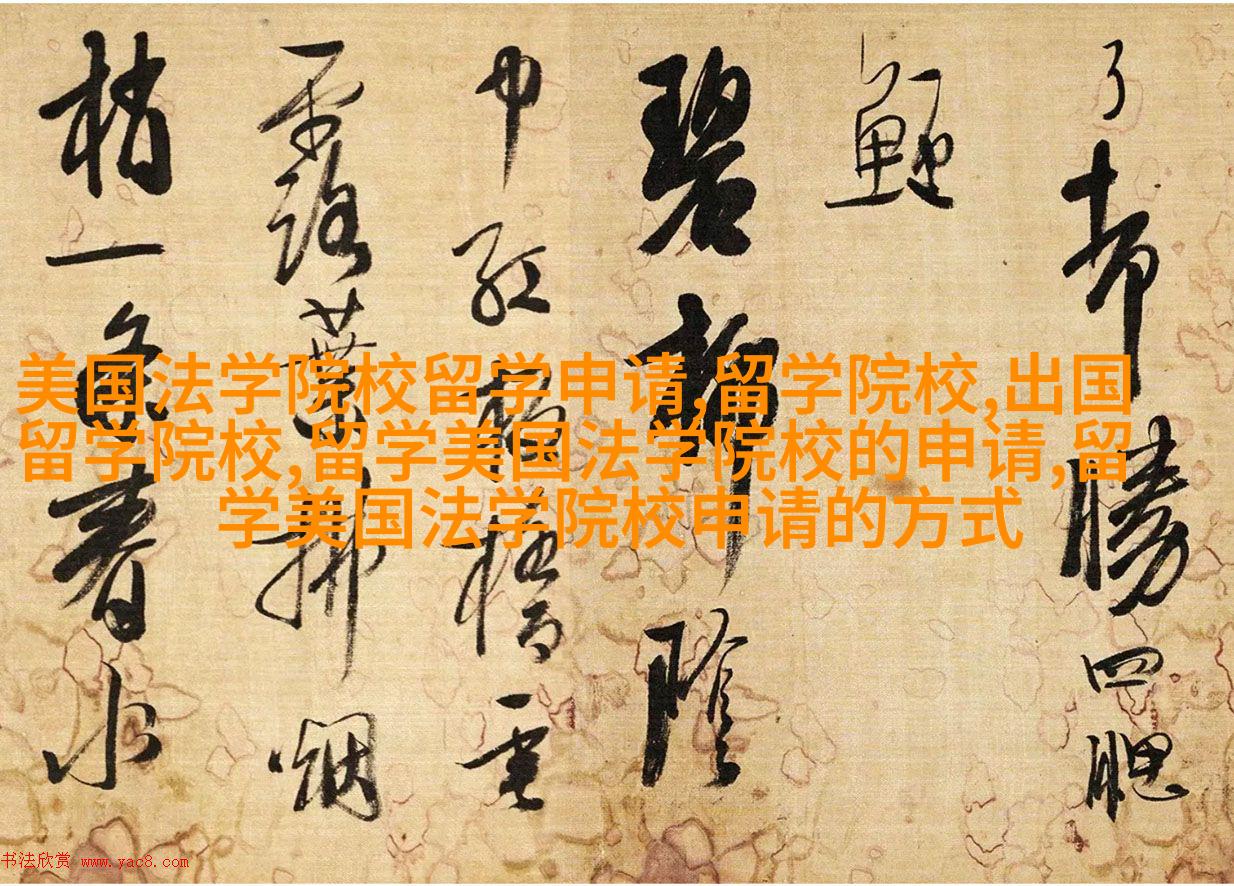 勝四腮
碧柳陰
葉拂烟
梢一魚春水
美国法学院校留学申请,留学院校,出国
留学院校,留学美国法学院校的申请,留
学美国法学院校申请的方式
书法欣赏 www.yac8.com